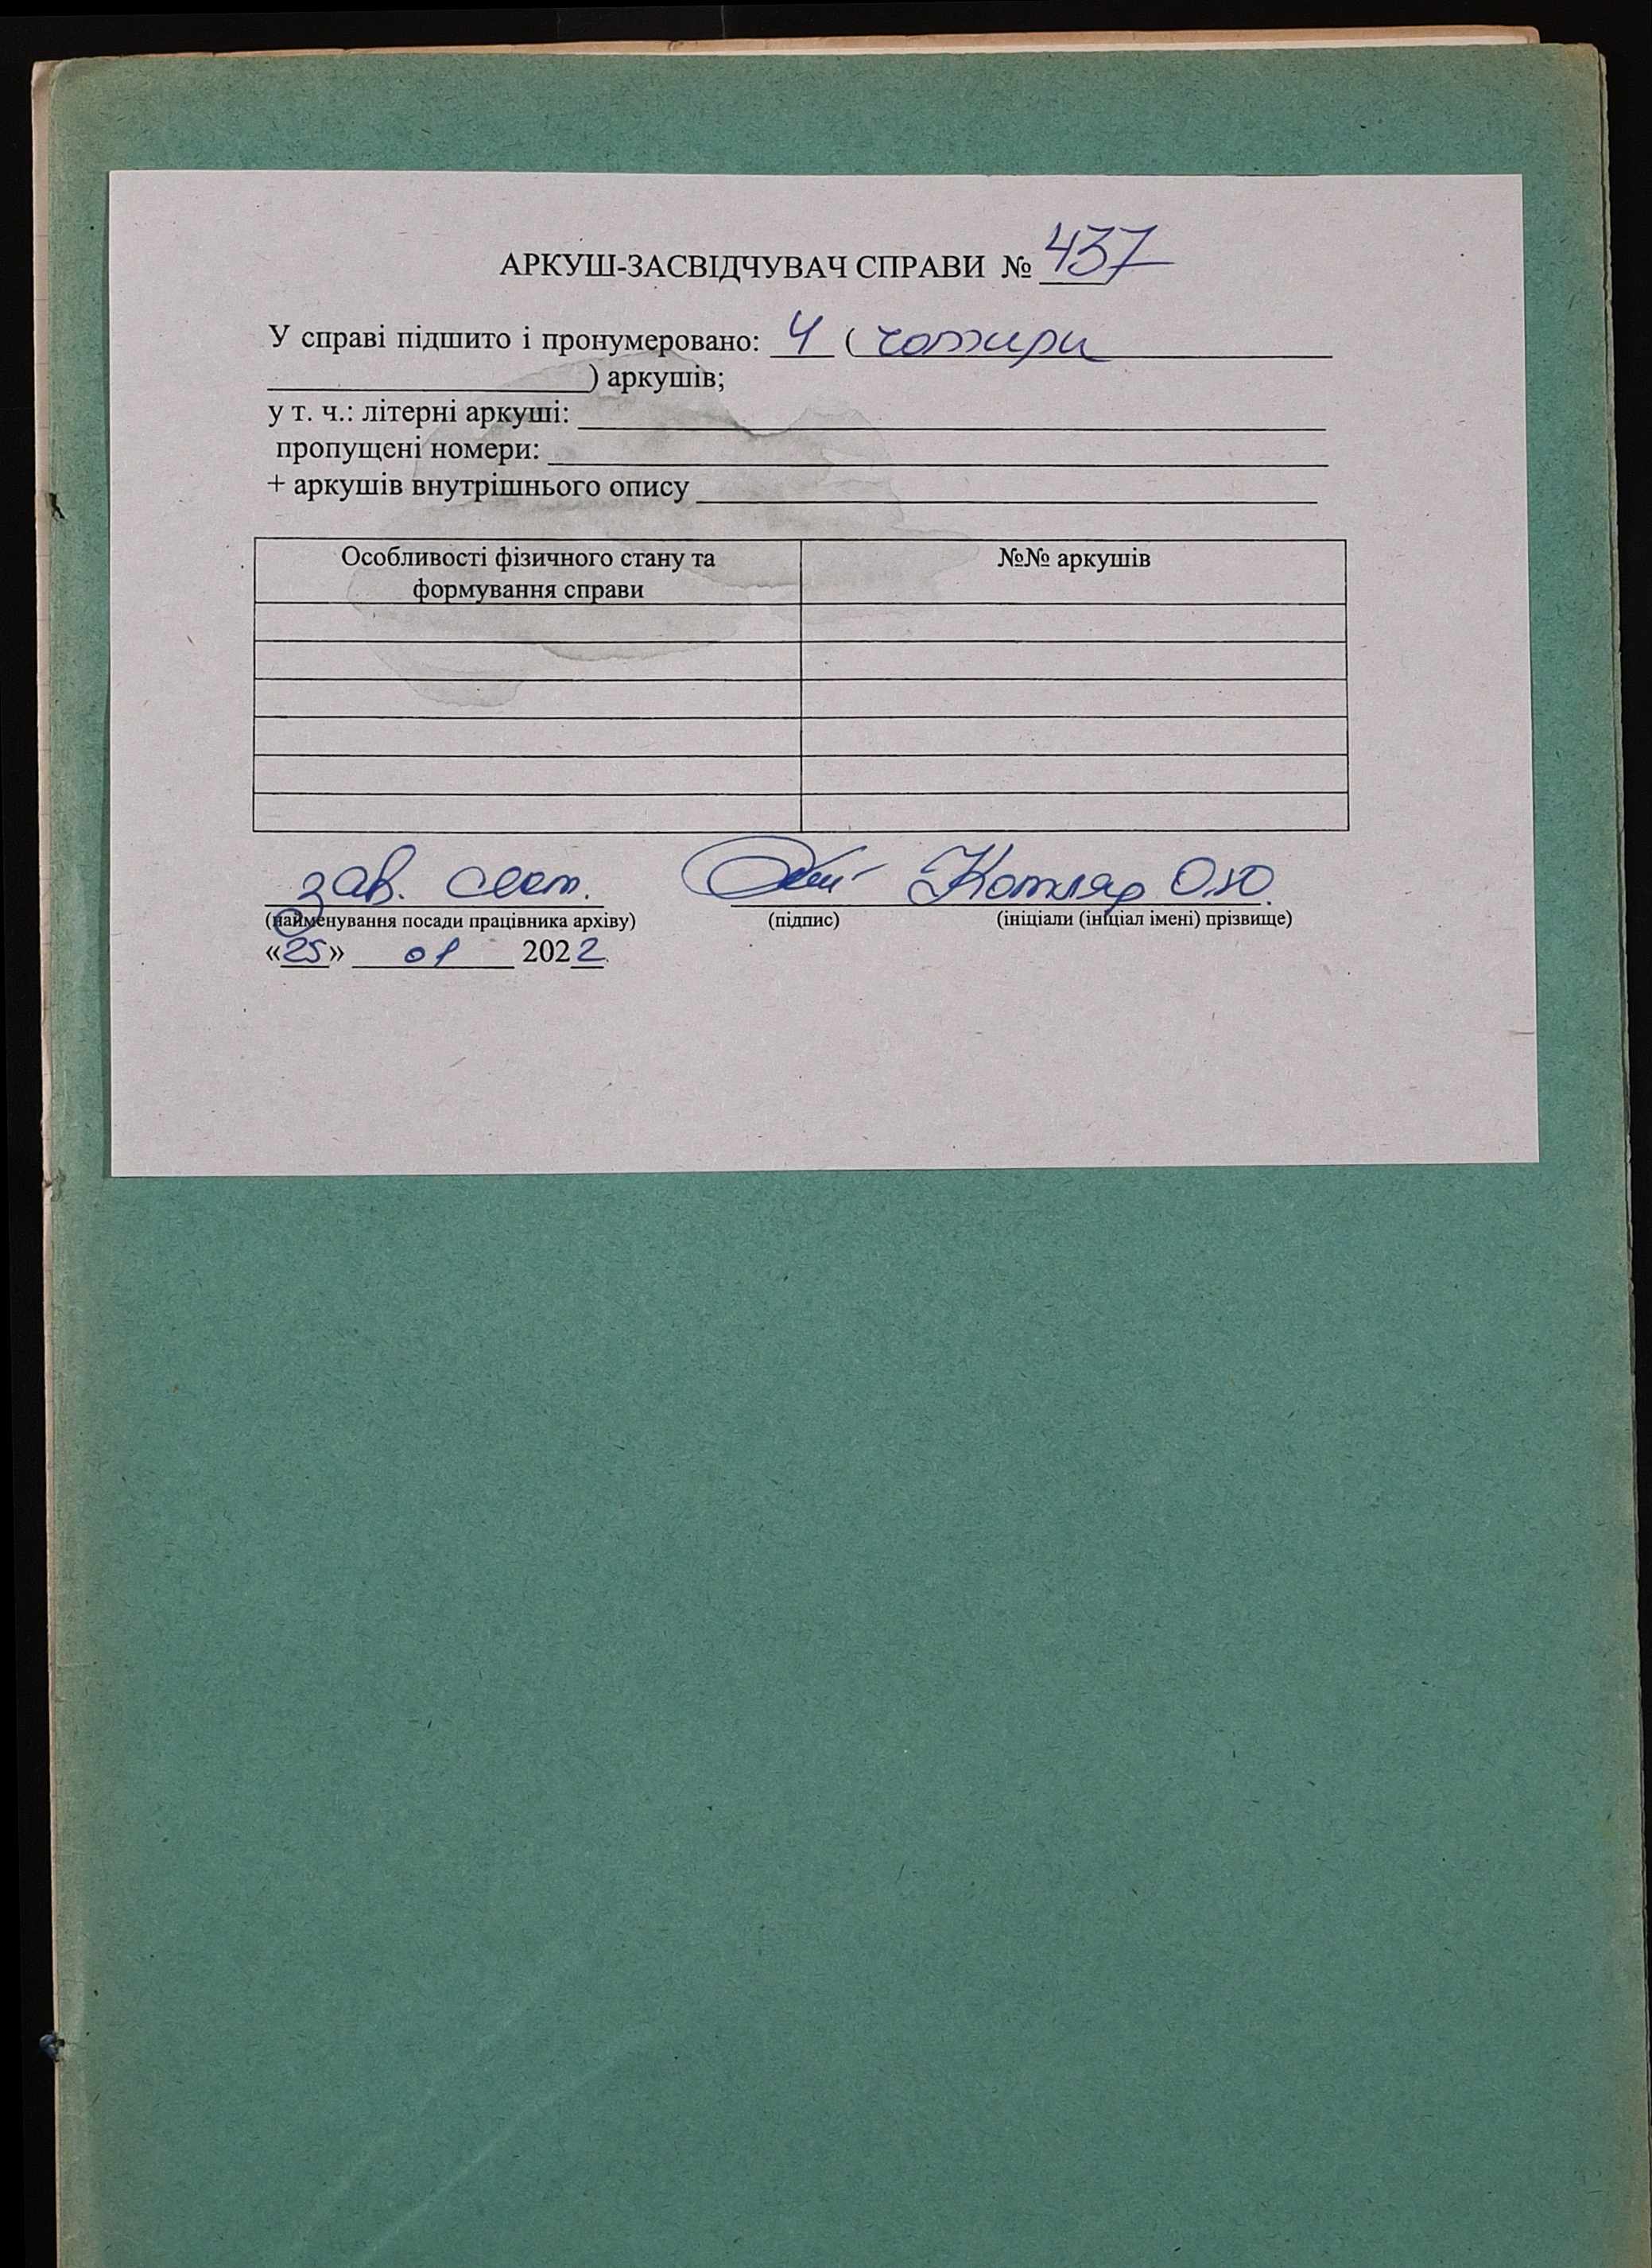 АРКУШ-ЗАСВІДЧУВАЧ СПРАВИ № 437
У справі підшито і пронумеровано: 4 ( чотири
) аркушів;
у т. ч.: літерні аркуші:
пропущені номери:
+ аркушів внутрішнього опису
Особливості фізичного стану та формування справи №№ аркушів
зав. Котляр О.Ю.
(найменування посади працівника архіву) (підпис) (ініціали (ініціал імені) прізвище)
«25» 01 2022